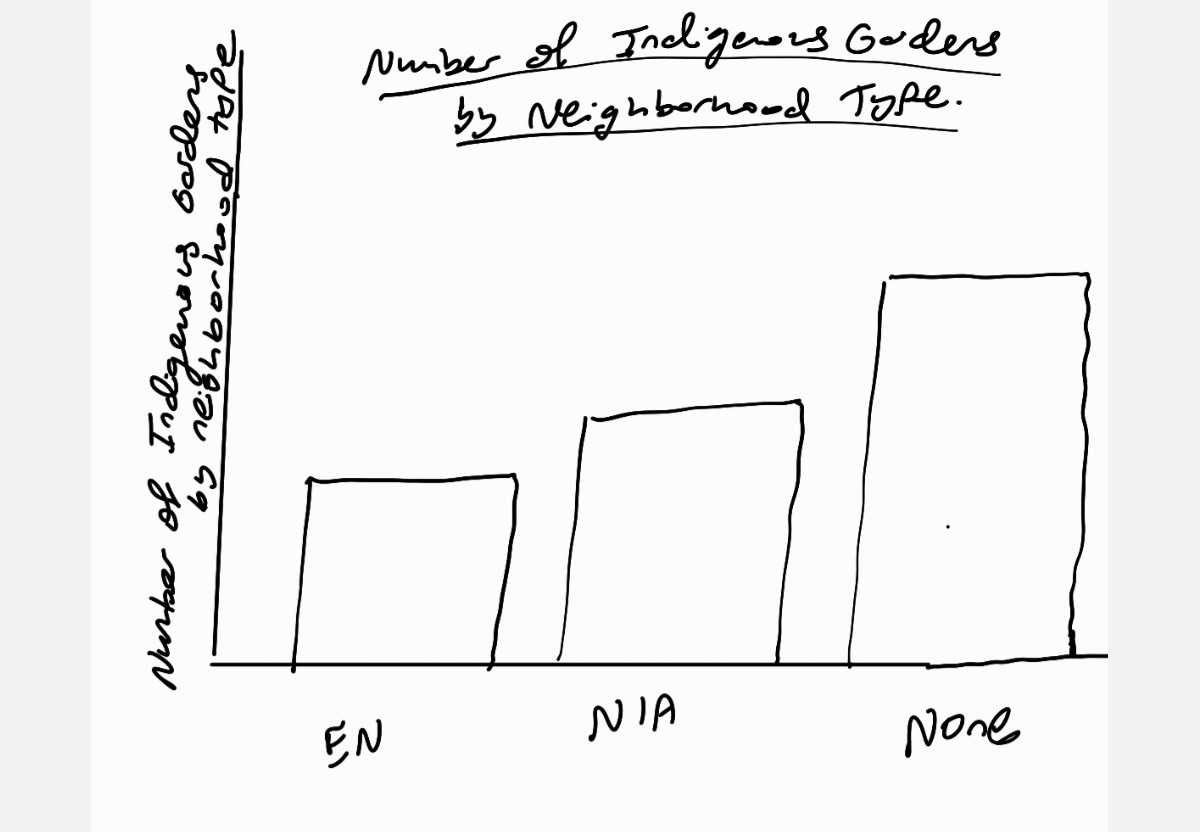 Number of Indigenous Gardens
by Neighborhood Type.
Number of Indigenous Gardens
by neighborhood type
EN
NIA
None